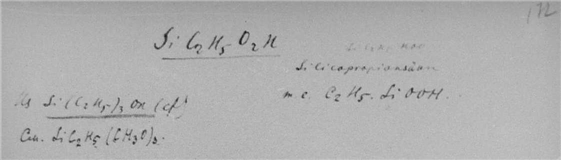 172
Si C2 H5 O2 H
Silicopropionsäure
m. c. C2 H5. Si OOH.
Si (C2H5)3 OH (cf)
Si C2H5 (CH3O)3.